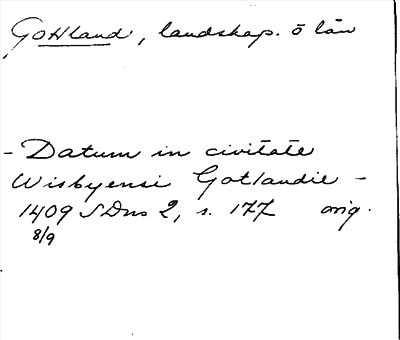 Gottland, landskap. o län
- Datum in civitate
Wisbyensi Gotlandie -
1409 SDns 2, s. 177 orig.
8/9